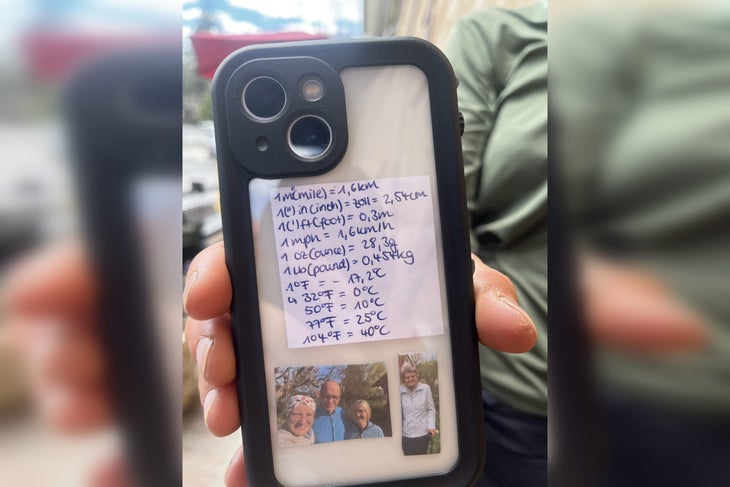 1 m(mile) = 1,6km
1(") in(inch) = zoll = 2,54cm
1(') ft(foot) = 0,3m
1 mph = 1,6 km/h
1 oz(ounce) = 28,3g
1 lb(pound) = 0,454kg
1°F = - 17,2°C
↳ 32°F = 0°C
50°F = 10°C
77°F = 25°C
104°F = 40°C